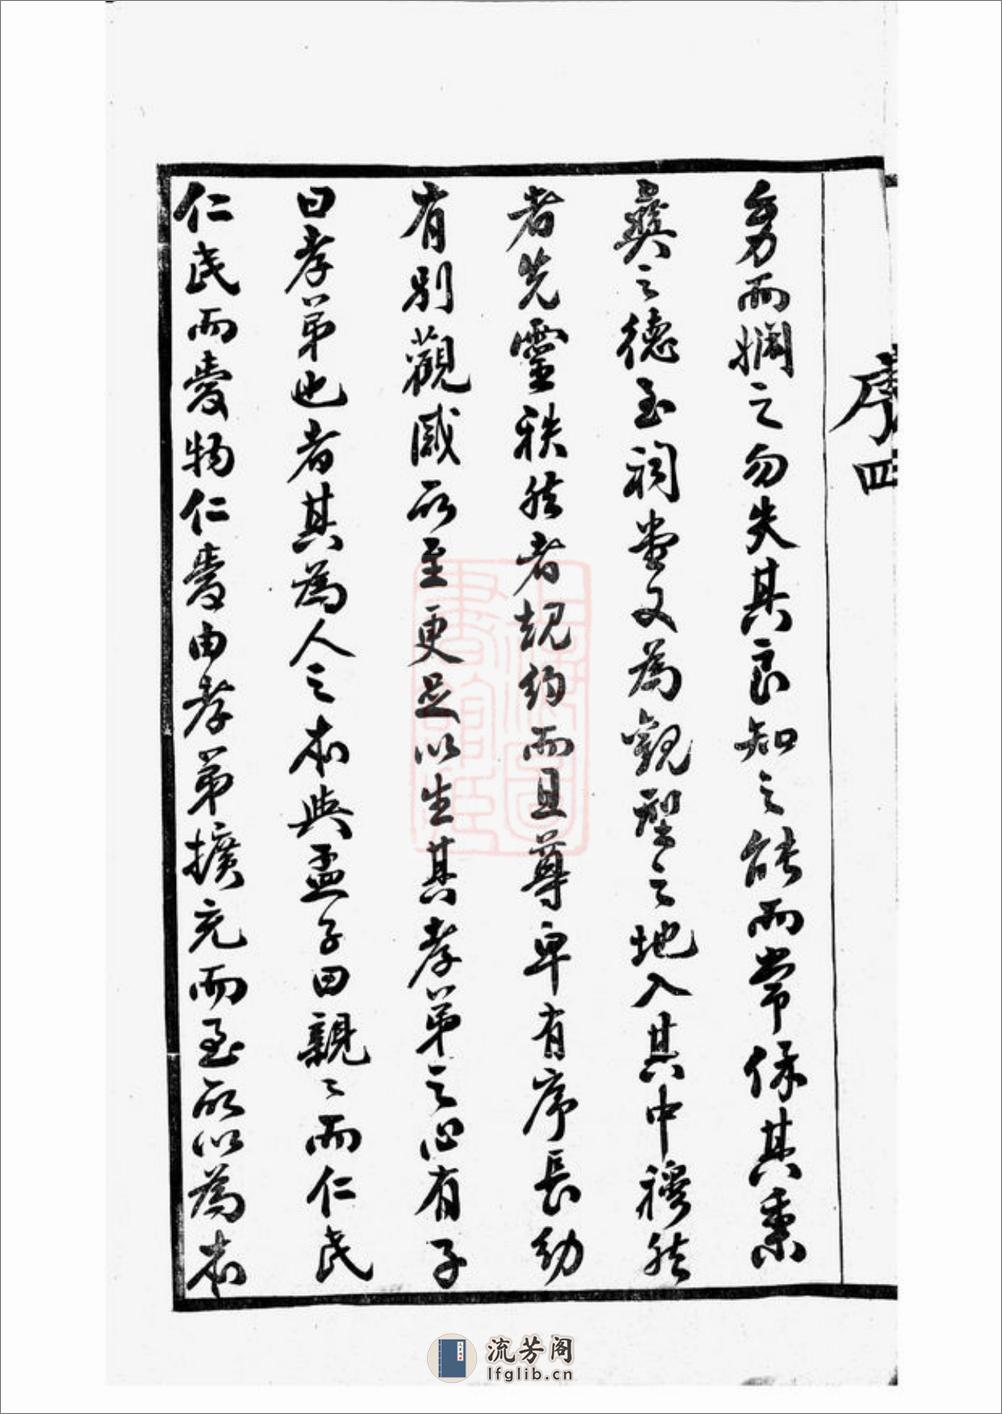 序四
勇而擱之勿失其良知之能而常保其秉
彝之德至祠堂又為觀型之地入其中穆然
者先靈秩然者規約而且尊卑有序長幼
有別觀感所至更足以生其孝弟之心有子
曰孝弟也者其為人之本與孟子曰親〻而仁民
仁民而愛物仁愛由孝弟擴充而至所以為本
上海圖書館藏
流芳阁
lfglib.cn